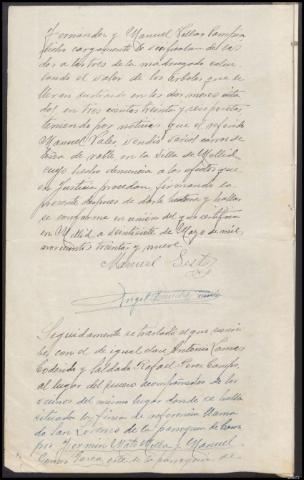 Fernandez y Manuel Valos Campos
dicho cargamento lo verificaron del sa-
do a las tres de la madrugada calcu-
lando el valor de los árboles que se
llevan sustraido en los dos meses aluda-
dos en tres cientas treinta y seis pesetas
teniendo por noticias que el referido
Manuel Valos vendió varios carros de
leña de roble en la Villa de Mellid
cuyo hecho denuncia a los efectos que
en justicia procedan, firmando la
presente despues de darle lectura y hallar-
se conforme en union del que certifica
en Mellid a veintisiete de Mayo de mil
novecientos treinta y nueve.
Manuel
Angel
Seguidamente se trasladó el que suscri-
be, con el de igual clase Antonio Camas
Cedeida y soldado Rafael Pons Campos,
al lugar del suceso acompañados de los
vecinos del mismo lugar donde se halla
situada la finca de referencia llama-
da San Lorenzo de la parroquia de
por Fermin Mato Villa y Manuel
Gomez este es la parroquia de